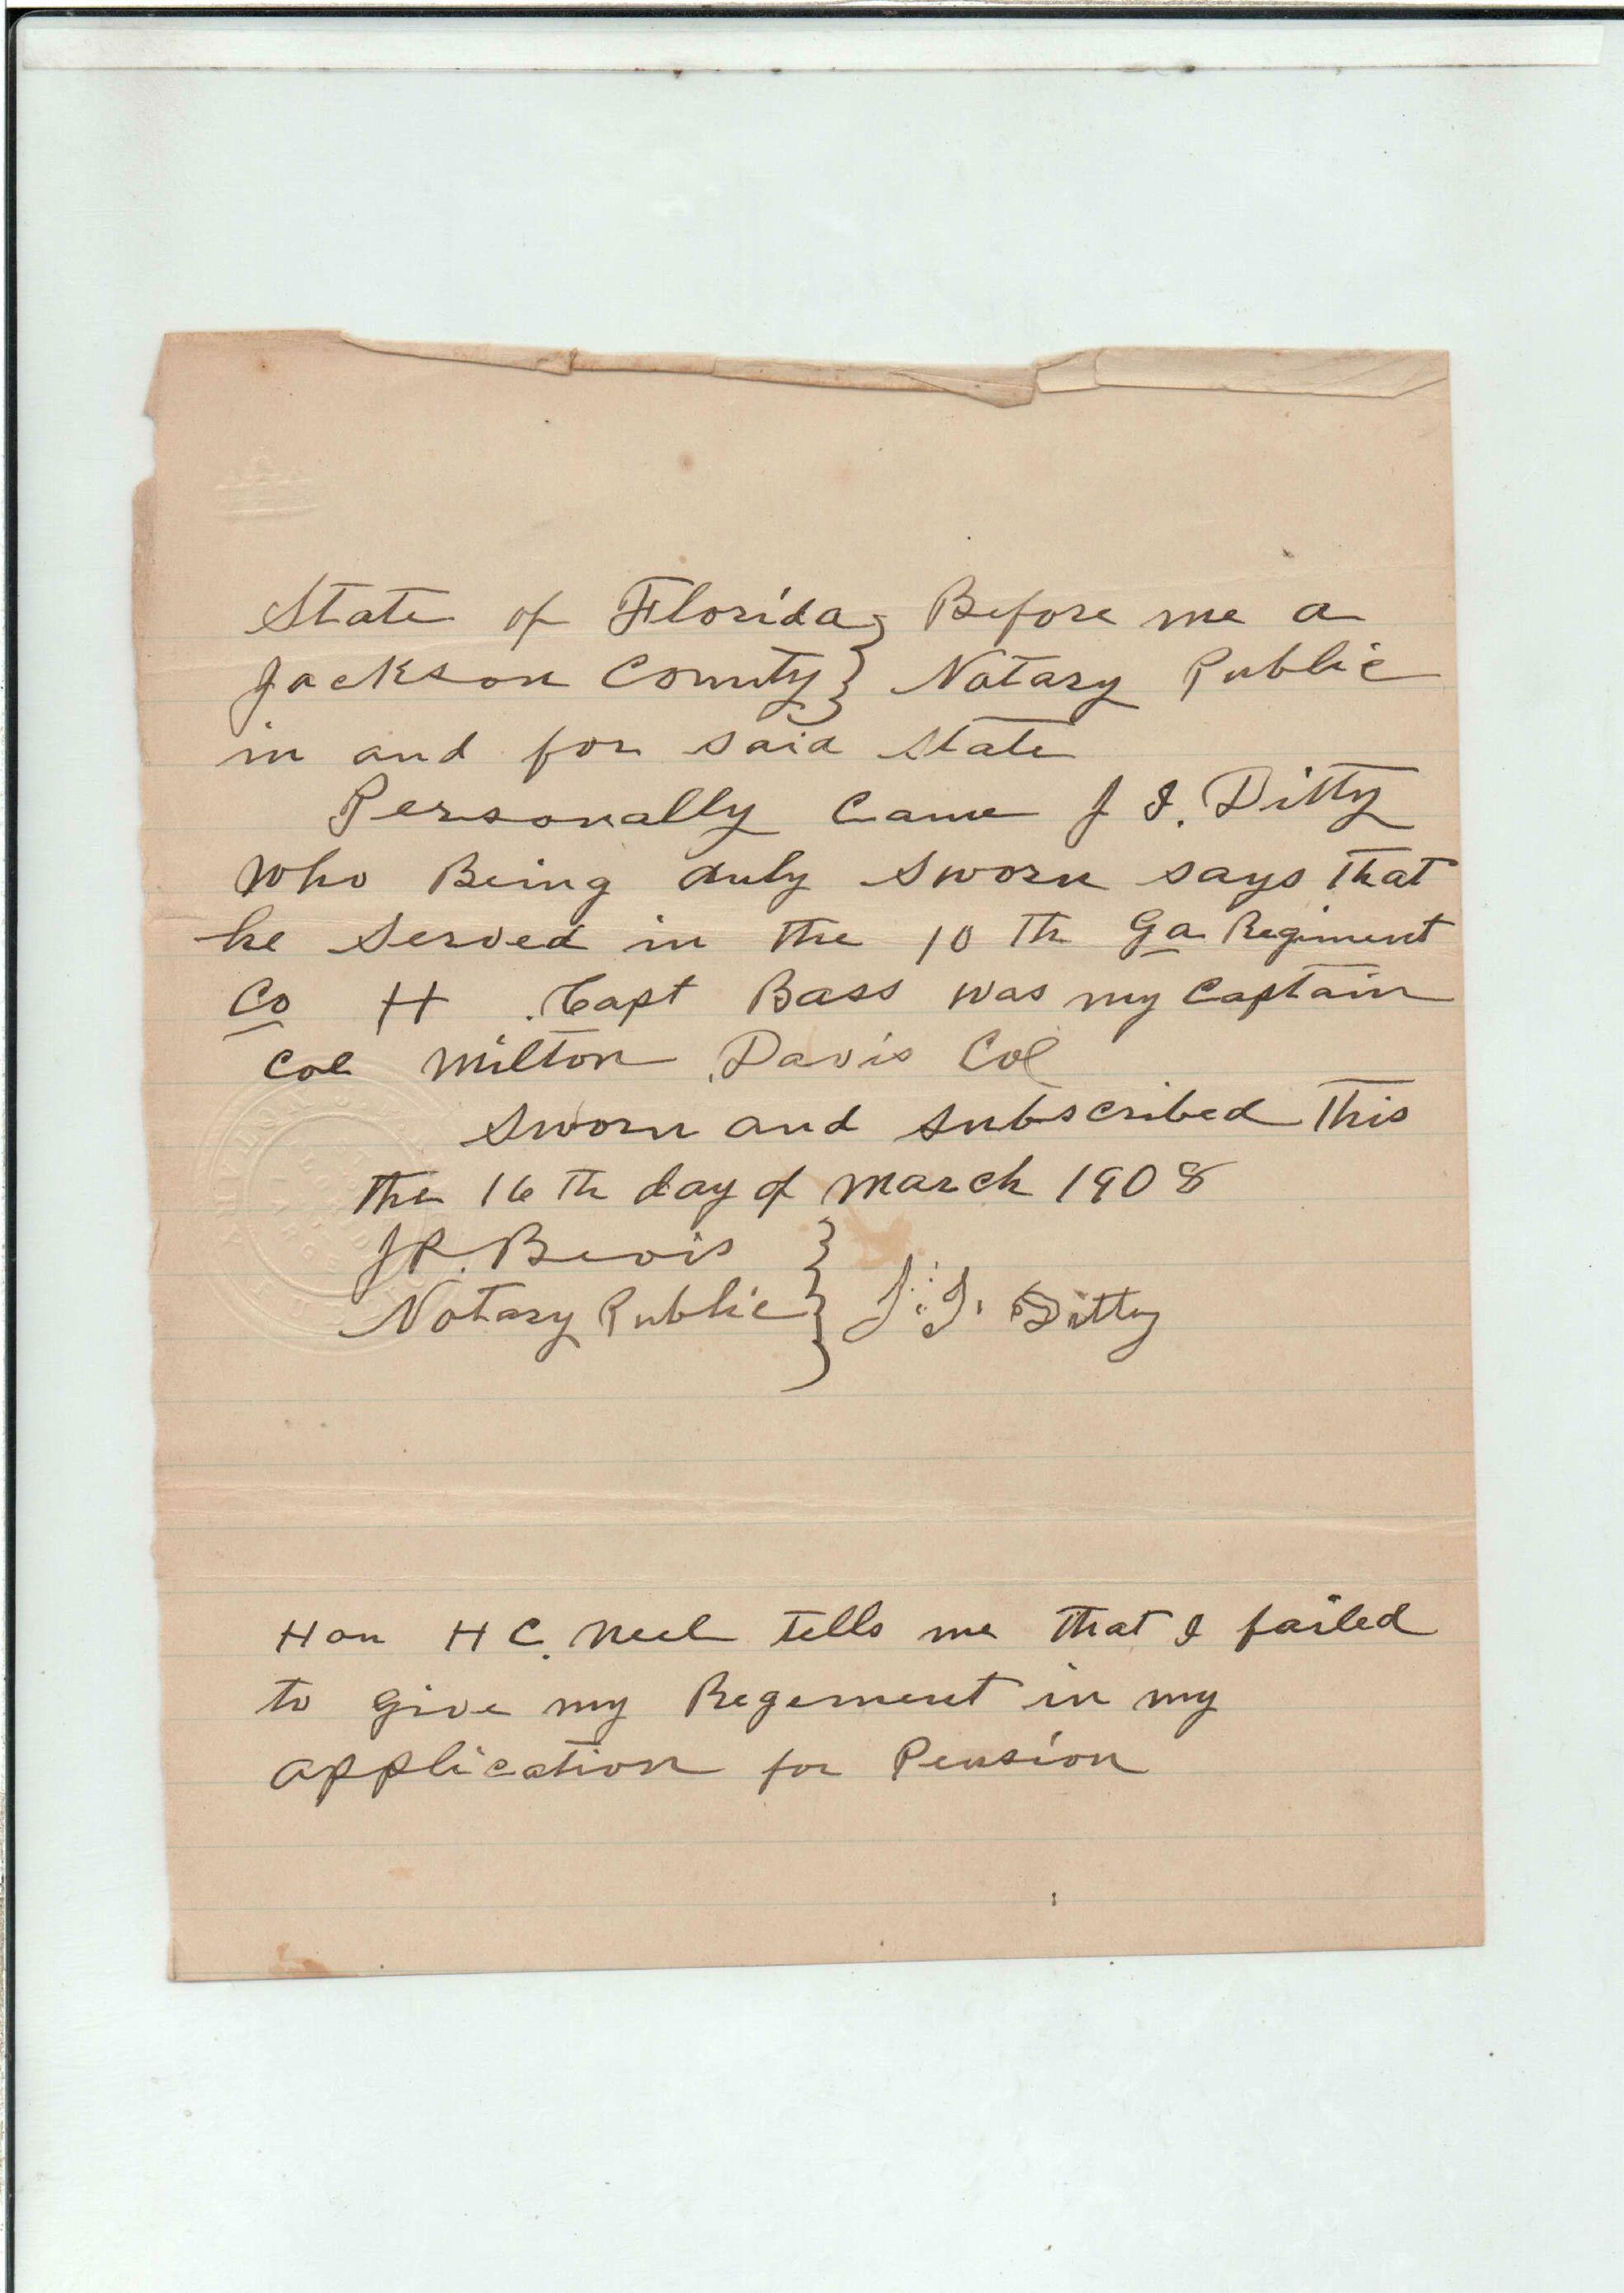 State of Florida } Before me a
Jackson County } Notary Public
in and for said State
Personally Came J I. Ditty
who Being duly Sworn says that
he Served in the 10 th Ga Regiment
Co H Capt Bass was my Captain
Col Milton Davis Col
Sworn and subscribed This
the 16 th day of March 1908
J R. Bevis }
Notary Public } J. I. Ditty
Hon H C. Neel tells me that I failed
to give my Regement in my
application for Pension